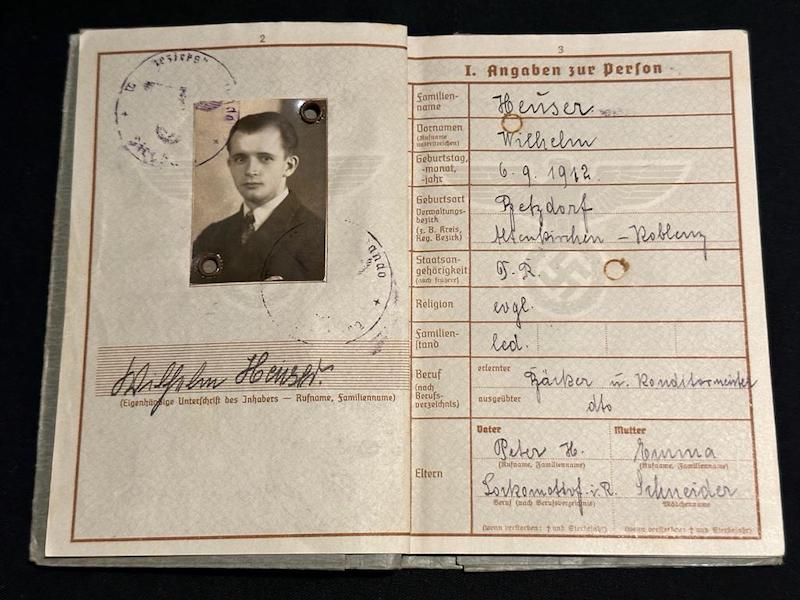 2
Wilhelm Heuser.
(Eigenhändige Unterschrift des Inhabers — Rufname, Familienname)
3
I. Angaben zur Person
Familien-
name
Heuser.
Vornamen
(Rufname
unterstreichen)
Wilhelm
Geburtstag,
-monat,
-jahr
6. 9. 1912.
Geburtsort
Verwaltungs-
bezirk
(z. B. Kreis,
Reg. Bezirk)
Betzdorf
Altenkirchen – Koblenz
Staatsan-
gehörigkeit
(auch frühere)
D. R.
Religion
evgl.
Familien-
stand
led.
Beruf
(nach
Berufs-
verzeichnis)
erlernter
Bäcker u. Konditormeister
ausgeübter
dto
Eltern
Vater
Mutter
Peter H.
Emma
(Rufname, Familienname)
(Rufname, Familienname)
i. R.
Schneider
Beruf (nach Berufsverzeichnis)
Mädchenname
(wenn verstorben: † und Sterbejahr)
(wenn verstorben: † und Sterbejahr)